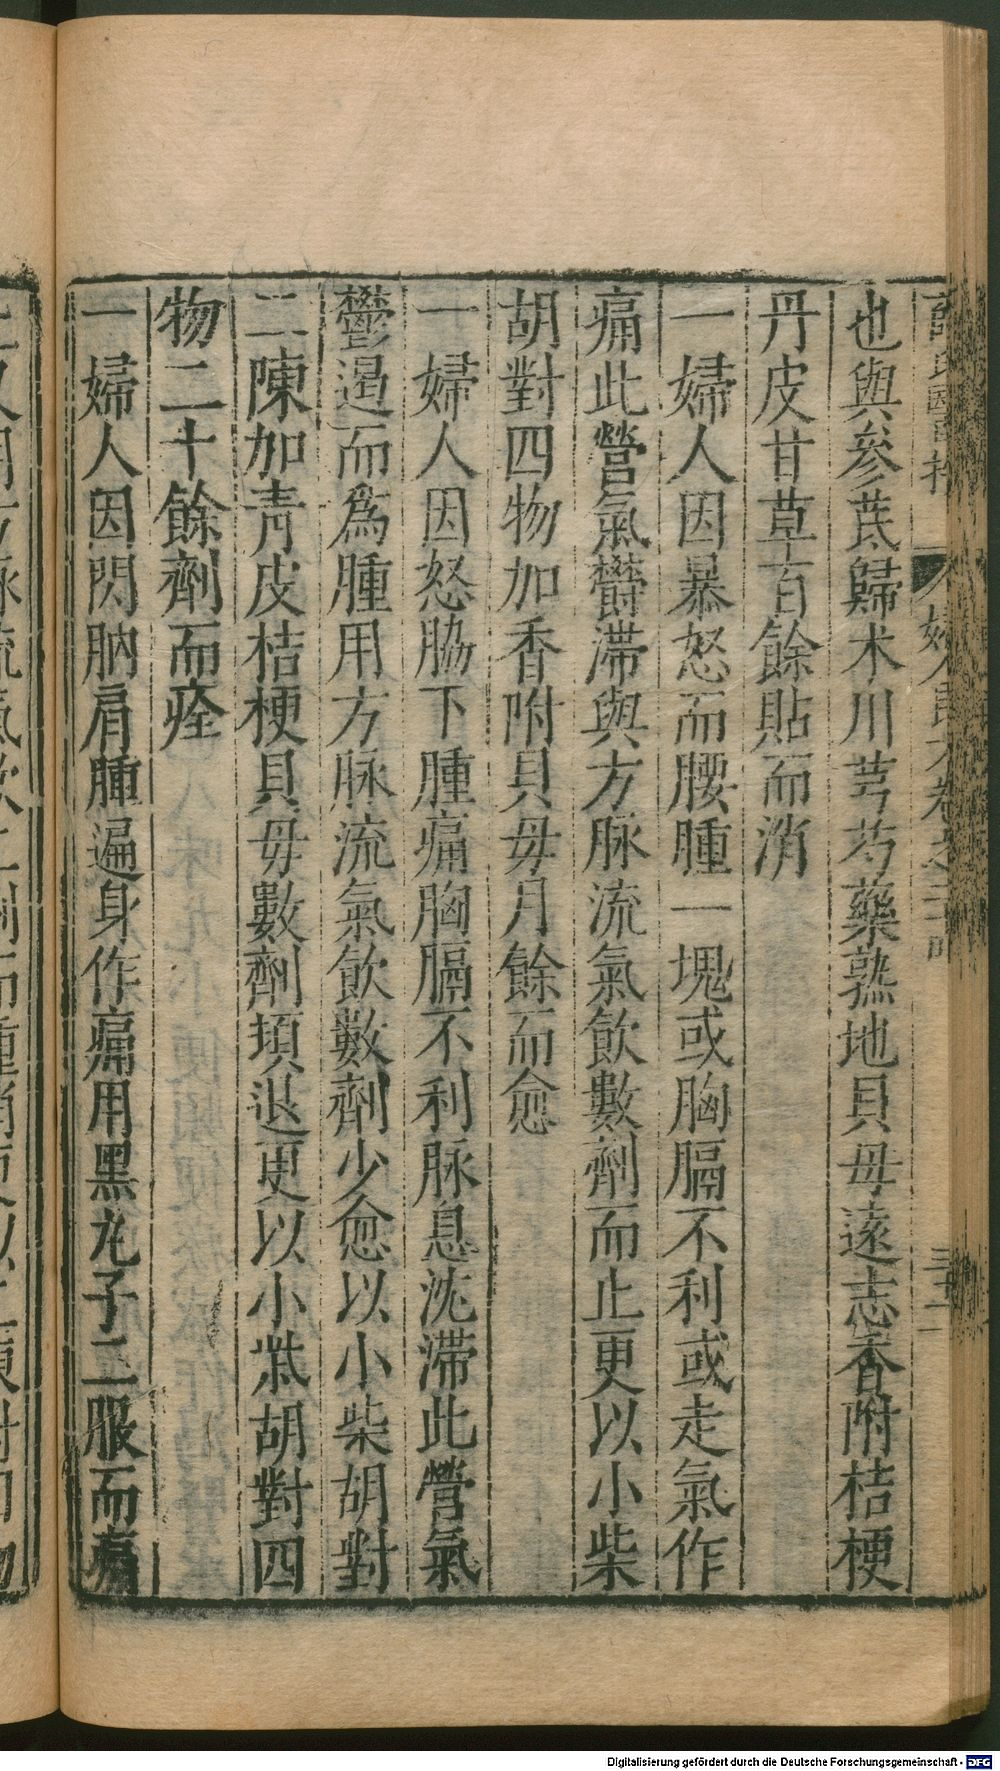 也與參芪歸术川芎芍藥熟地貝母遠志香附桔梗
丹皮甘草百餘貼而消
一婦人因暴怒而腰腫一塊或胸膈不利或走氣作
痛此營氣欝滯與方脉流氣飲數劑而止更以小柴
胡對四物加香附貝母月餘而愈
一婦人因怒脇下腫痛胸膈不利脉息沈滯此營氣
鬱遏而爲腫用方脉流氣飲數劑少愈以小柴胡對
二陳加青皮桔梗貝母數劑頓退更以小柴胡對四
物二十餘劑而痊
一婦人因閃肭肩腫遍身作痛用黑丸子二服而痛
Digitalisierung gefördert durch die Deutsche Forschungsgemeinschaft - DFG